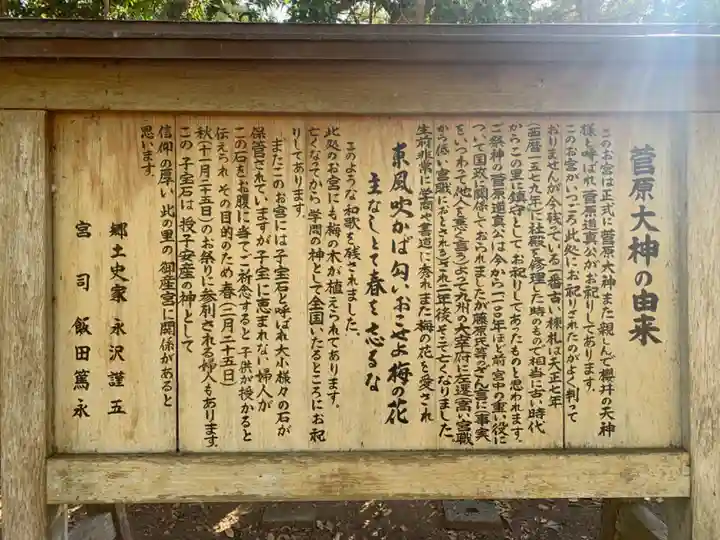 菅原大神の由来
このお宮は正式に菅原大神また親しんで櫻井の天神
様と呼ばれ(菅原道真公)がお祀りしてあります。
このお宮がいつごろ此処にお祀りされたのかよく判って
おりませんが今残っている一番古い棟札は大正七年
(西暦一五七九年)に社殿を修理した時のもので相当に古い時代
からこの里に鎮守としてお祀りしてあったものと思われます。
ご祭神の菅原道真公は今から一一〇〇年ほど前宮中の重い役に
ついて国政に関係しておられましたが藤原氏等のざん言に(事実
をいつわって他人を悪く言う)よって九州の大宰府に左遷(高い官職
から低い官職におとされる)され二年後そこで亡くなりました。
生前非常に学問や書道に秀れまた梅の花を愛され
東風吹かば匂いおこせよ梅の花
主なしとて春を忘るな
このような和歌を残されました。
此処のお宮にも梅の木が植えられてあります。
亡くなってから学問の神として全国いたるところにお祀
りしてあります。
またこのお宮には子宝石と呼ばれ大小様々の石が
保管されていますが子宝に恵まれない婦人が
この石をお腹に当てご祈念すると子供が授かると
伝えられその目的のため春(二月二十五日)
秋(十一月二十五日)のお祭りに参列される婦人もあります。
この子宝石は授子安産の神として
信仰の厚い此の里の御産宮に関係があると
思います。
郷土史家 永沢謹五
宮司 飯田篤永